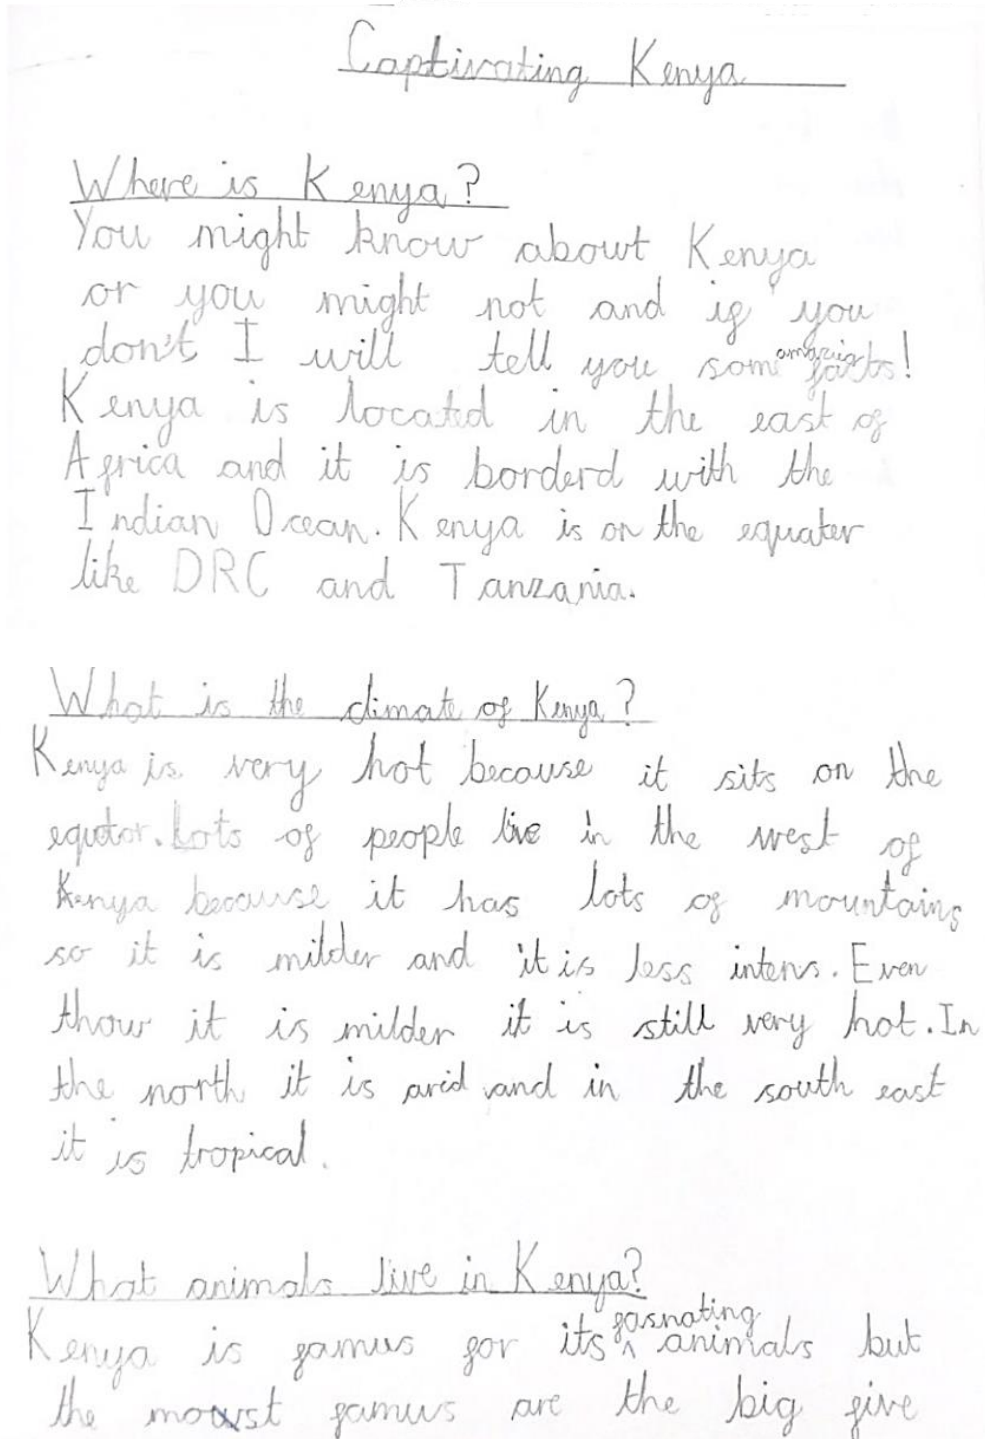 Captivating Kenya
Where is Kenya?
You might know about Kenya
or you might not and if you
don't I will tell you some amazing facts!
Kenya is located in the east of
Africa and it is borderd with the
Indian Ocean. Kenya is on the equater
like DRC and Tanzania.
What is the climate of Kenya?
Kenya is very hot because it sits on the
equator. Lots of people live in the west of
Kenya because it has lots of mountains
so it is milder and it is less intens. Even
thow it is milder it is still very hot. In
the north it is arid and in the south east
it is tropical.
What animals live in Kenya?
Kenya is famus for its fasnating animals but
the most famus are the big five